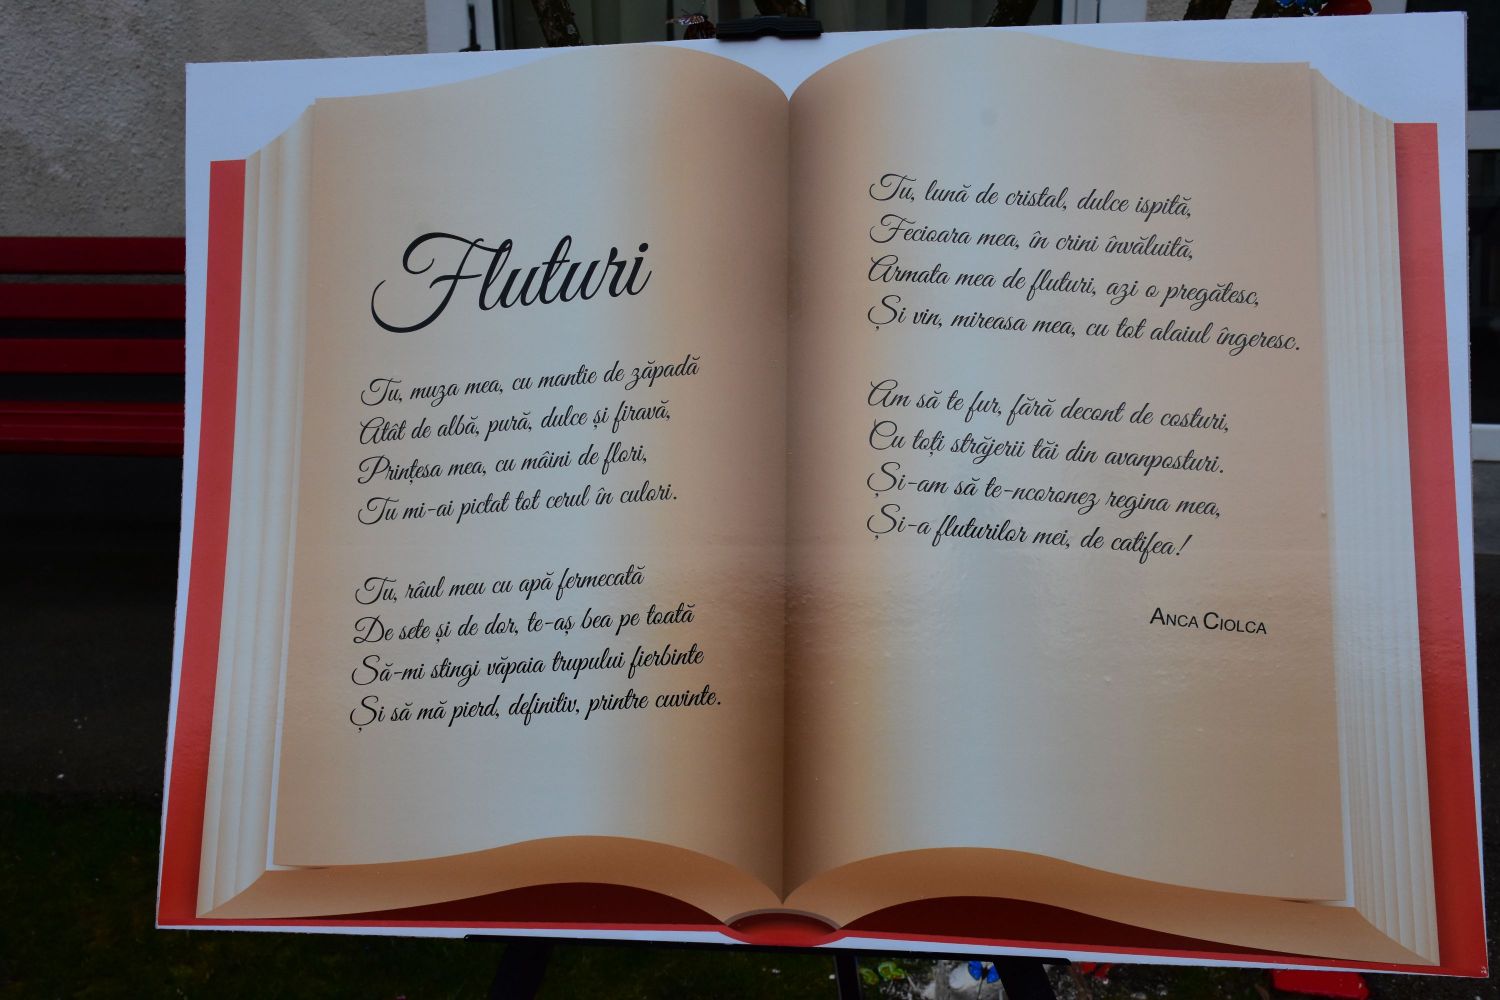 Fluturi
Tu, muza mea, cu mantie de zăpadă
Atât de albă, pură, dulce și firavă,
Prințesa mea, cu mâini de flori,
Tu mi-ai pictat tot cerul în culori.
Tu, râul meu cu apă fermecată
De sete și de dor, te-aș bea pe toată
Să-mi stingi văpaia trupului fierbinte
Și să mă pierd, definitiv, printre cuvinte.
Tu, lună de cristal, dulce ispită,
Fecioara mea, în crini învăluită,
Armata mea de fluturi, azi o pregătesc,
Și vin, mireasa mea, cu tot alaiul îngeresc.
Am să te fur, fără decont de costuri,
Cu toți străjerii tăi din avanposturi.
Și-am să te-ncoronez regina mea,
Și-a fluturilor mei, de catifea!
ANCA CIOLCA